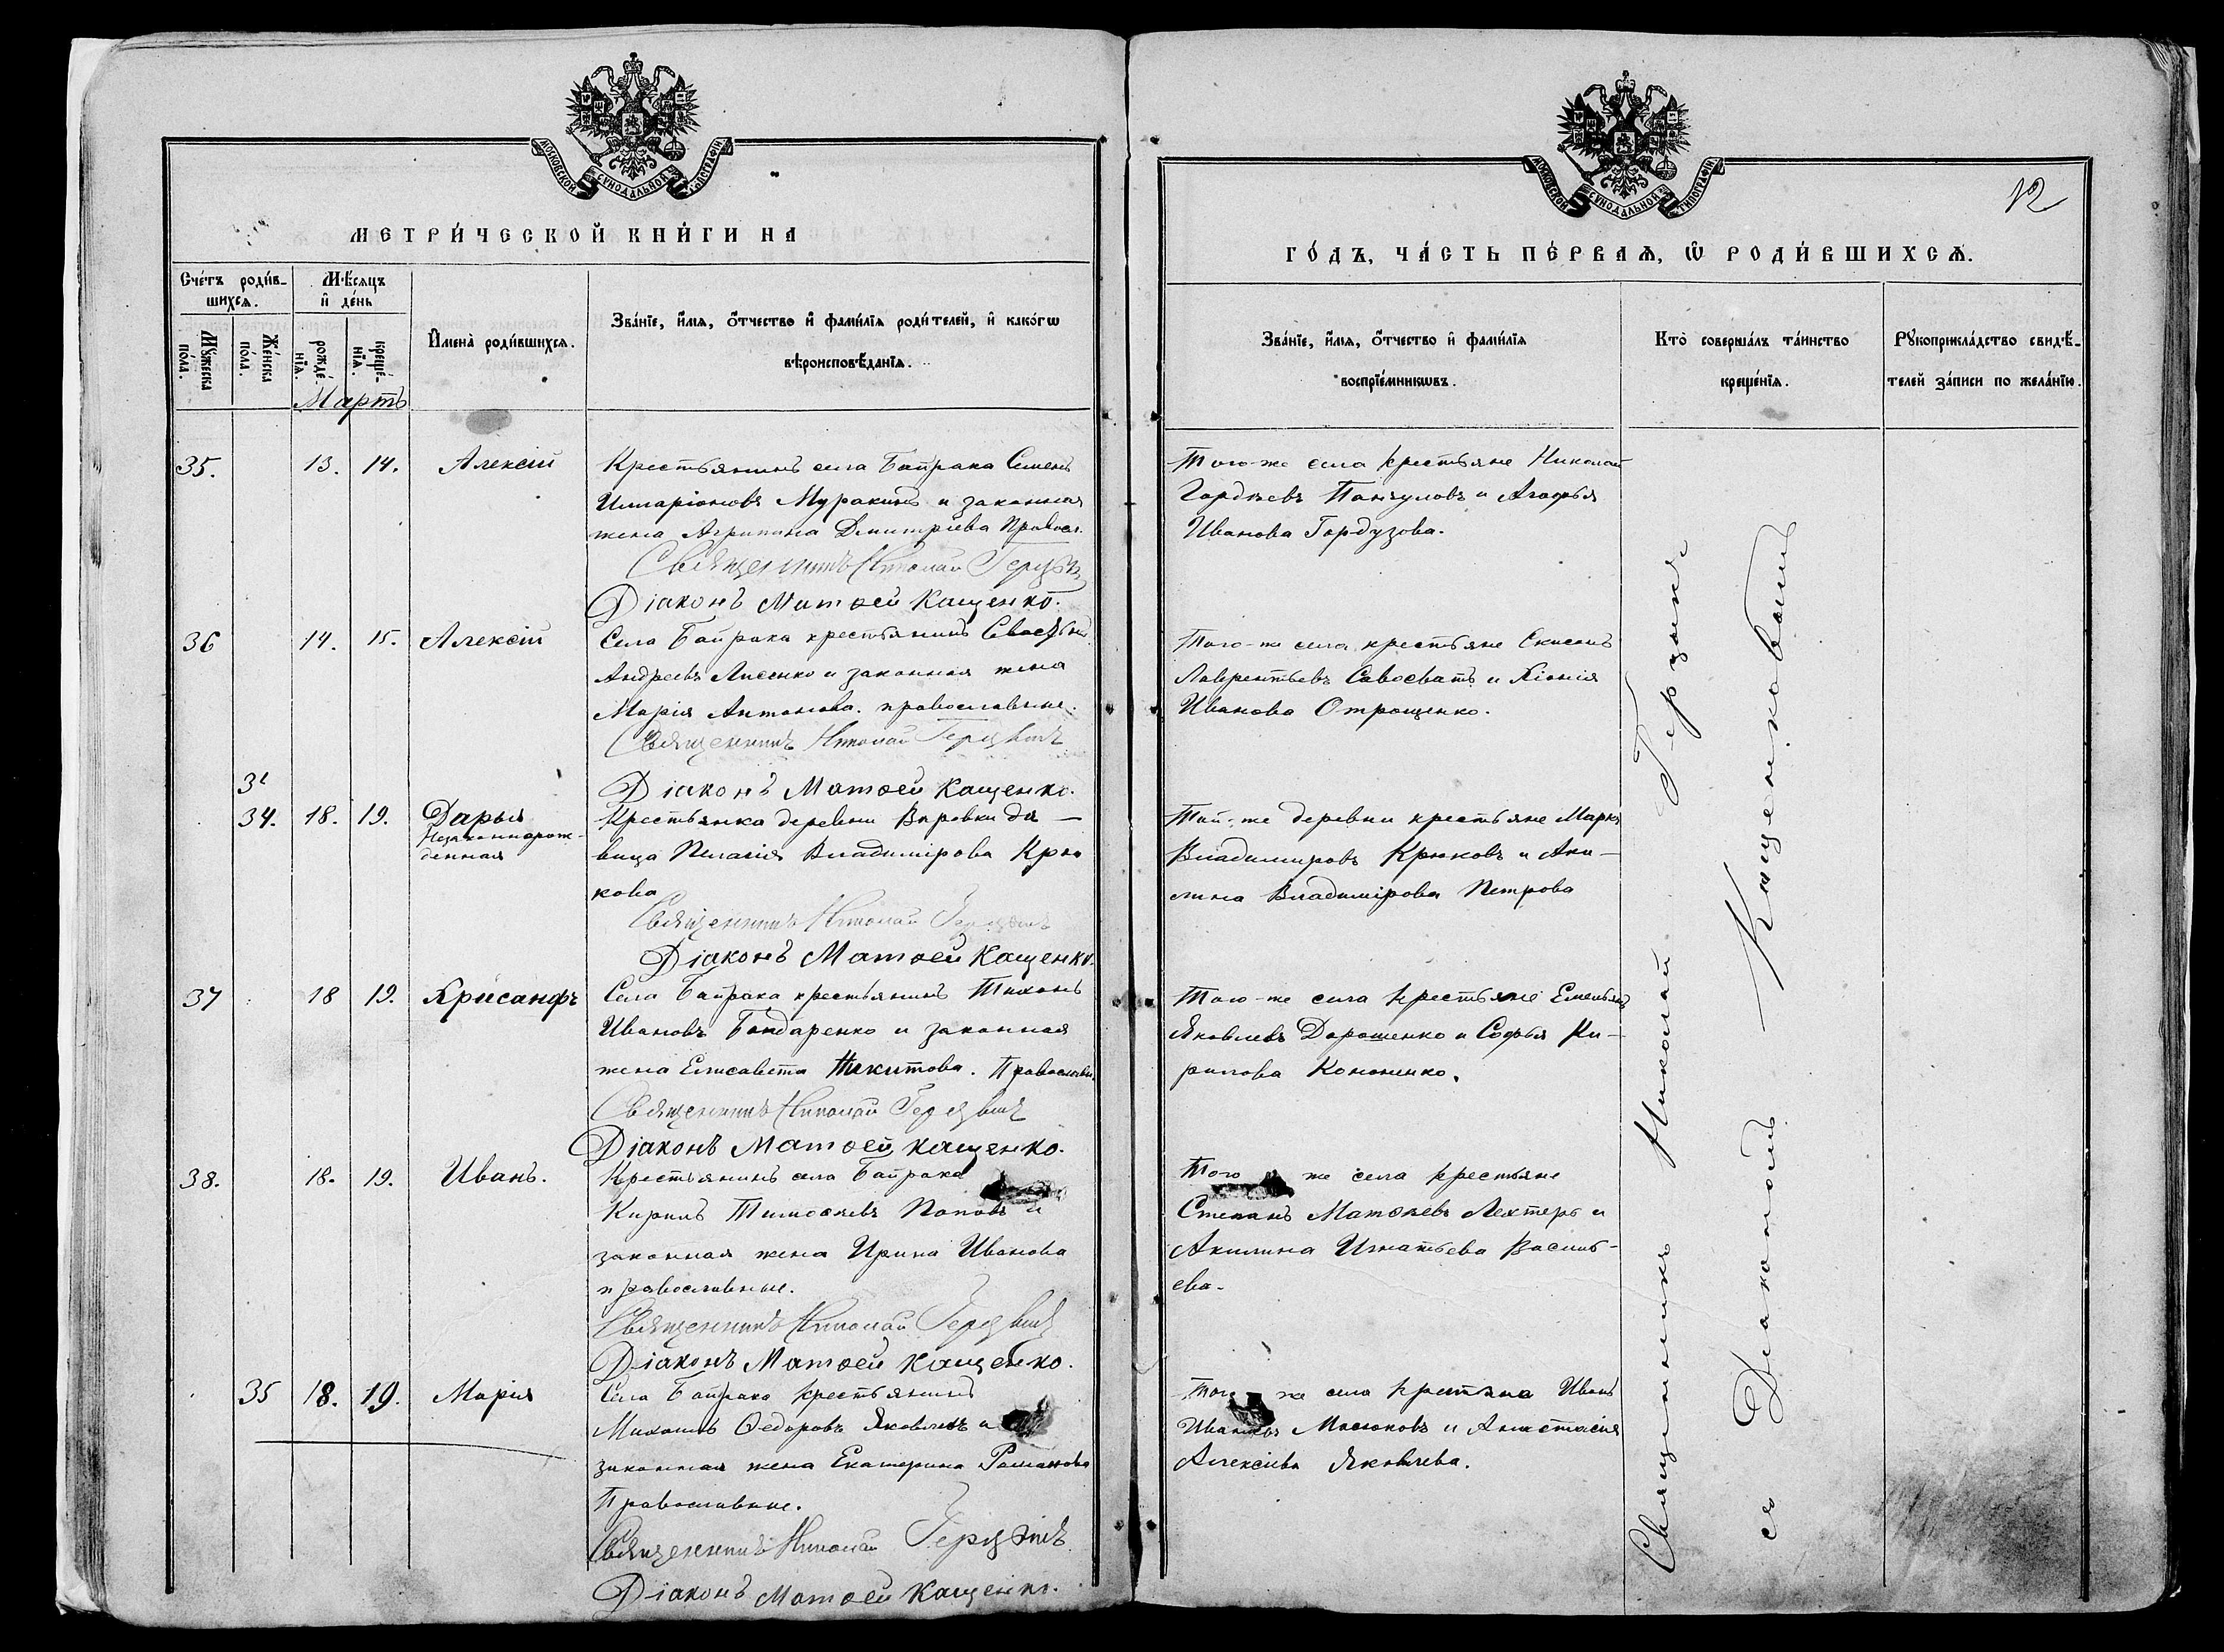 МОСКОВСКОЙ СѴНОДАЛЬНОЙ ТИПОГРАФІИ
МЕТРИ́ЧЕСКОЙ КНИ́ГИ НА
Сче́тъ роди́в-
шихсѧ.
Мѣ́сѧцъ
и҆ де́нь
Мꙋ́жеска
по́ла.
Же́нска
по́ла.
рожде́-
нїѧ.
креще́-
нїѧ.
И҆мена̀ роди́вшихсѧ.
Зва́нїе, и҆́мѧ, ѻ҆́тчество и҆ фами́лїѧ роди́телей, и҆ како́гѡ
вѣроисповѣ́данїѧ.
Мартъ
35. 13. 14. Алексій
Крестьянинъ села Байрака Семенъ
Илларіоновъ Муракинъ и законная
жена Агрипина Димитріева Правосл.
Священникъ Николай
Діаконъ Матѳей Кащенко.
36 14. 15. Алексій
Села Байрака крестьянинъ
Андреевъ Лисенко и законная жена
Марія Антонова. православные.
Священникъ Николай
Діаконъ Матѳей Кащенко.
34. 18. 19. Дарья
Незаконнорож-
денная
Крестьянка деревни Вировки дѣ —
вица Пелагія Владимірова Крю
кова
Священникъ Николай
Діаконъ Матѳей Кащенко.
37 18 19. Хрисанфъ
Села Байрака крестьянинъ Тихонъ
Ивановъ Бондаренко и законная
жена Елисавета Никитова. Православн.
Священникъ Николай
Діаконъ Матѳей Кащенко.
38. 18. 19. Иванъ.
Крестьянинъ села Байрака
Кирилъ Тимоѳеевъ Поповъ и
законная жена Ирина Иванова
православные.
Священникъ Николай
Діаконъ Матѳей Кащенко.
35 18. 19. Марія
Села Байрака крестьянинъ
Михаилъ Ѳедоровъ Яковлевъ и
законная жена Екатерина Романова
Православные.
Священникъ Николай
Діаконъ Матѳей Кащенко.
МОСКОВСКОЙ СѴНОДАЛЬНОЙ ТИПОГРАФІИ
12
ГО́ДЪ, ЧА́СТЬ ПЕ́РВАѦ, Ѡ҆ РОДИ́ВШИХСѦ.
Зва́нїе, и҆́мѧ, ѻ҆́тчество и҆ фами́лїѧ
воспрїе́мникѡвъ.
Кто̀ соверша́лъ та́инство
креще́нїѧ.
Рꙋкоприкла́дство свидѣ́-
телей за́писи по жела́нїю.
Того-же села крестьяне Николай
Гордѣевъ и Агафья
Иванова Гордузова.
Того-же села крестьяне
Лаврентьевъ Савосватъ и Хіонія
Иванова Отрощенко.
Той-же деревни крестьяне Маркъ
Владиміровъ Крюковъ и Аки—
лина Владимірова Петрова
Того-же села крестьяне Емельянъ
Яковлевъ Дорошенко и Софья Ки—
рилова Кононенко.
Того же села крестьяне
Степанъ Матѳѣевъ Лехтеръ и
Акилина Игнатьева Василь-
ева.
Того же села крестьяне Иванъ
Ивановъ и Анастасія
Алексіева Яковлева.
Священникъ Николай
съ Діакономъ Кащенковымъ